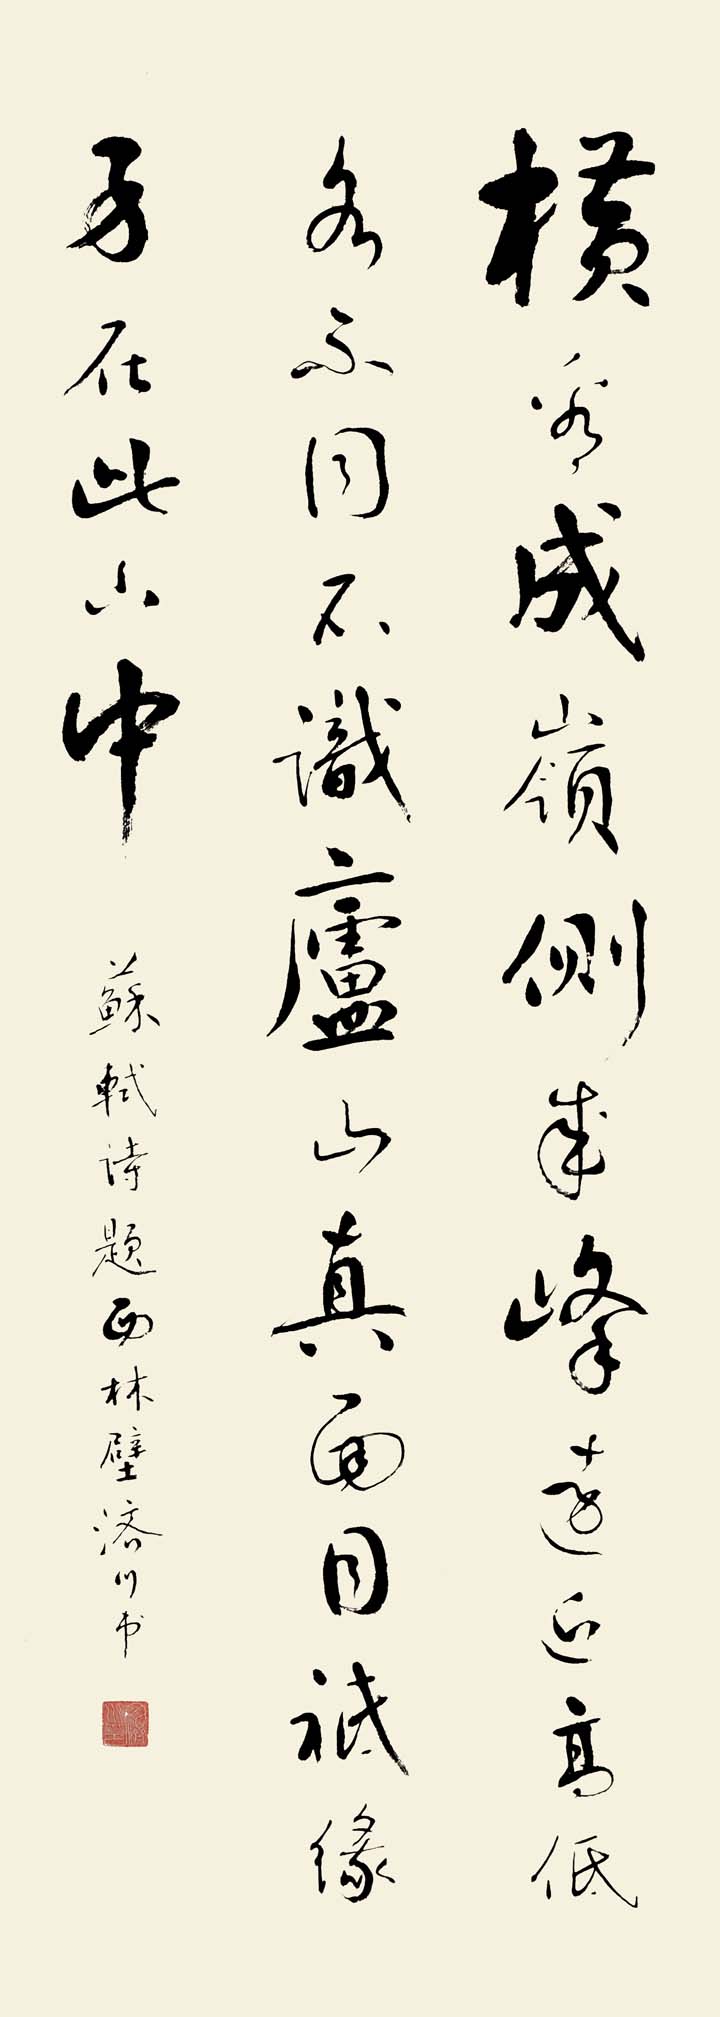 橫看成嶺側成峰遠近高低
各不同不識廬山真面目祇緣
身在此山中
蘇軾诗題西林壁濟川书